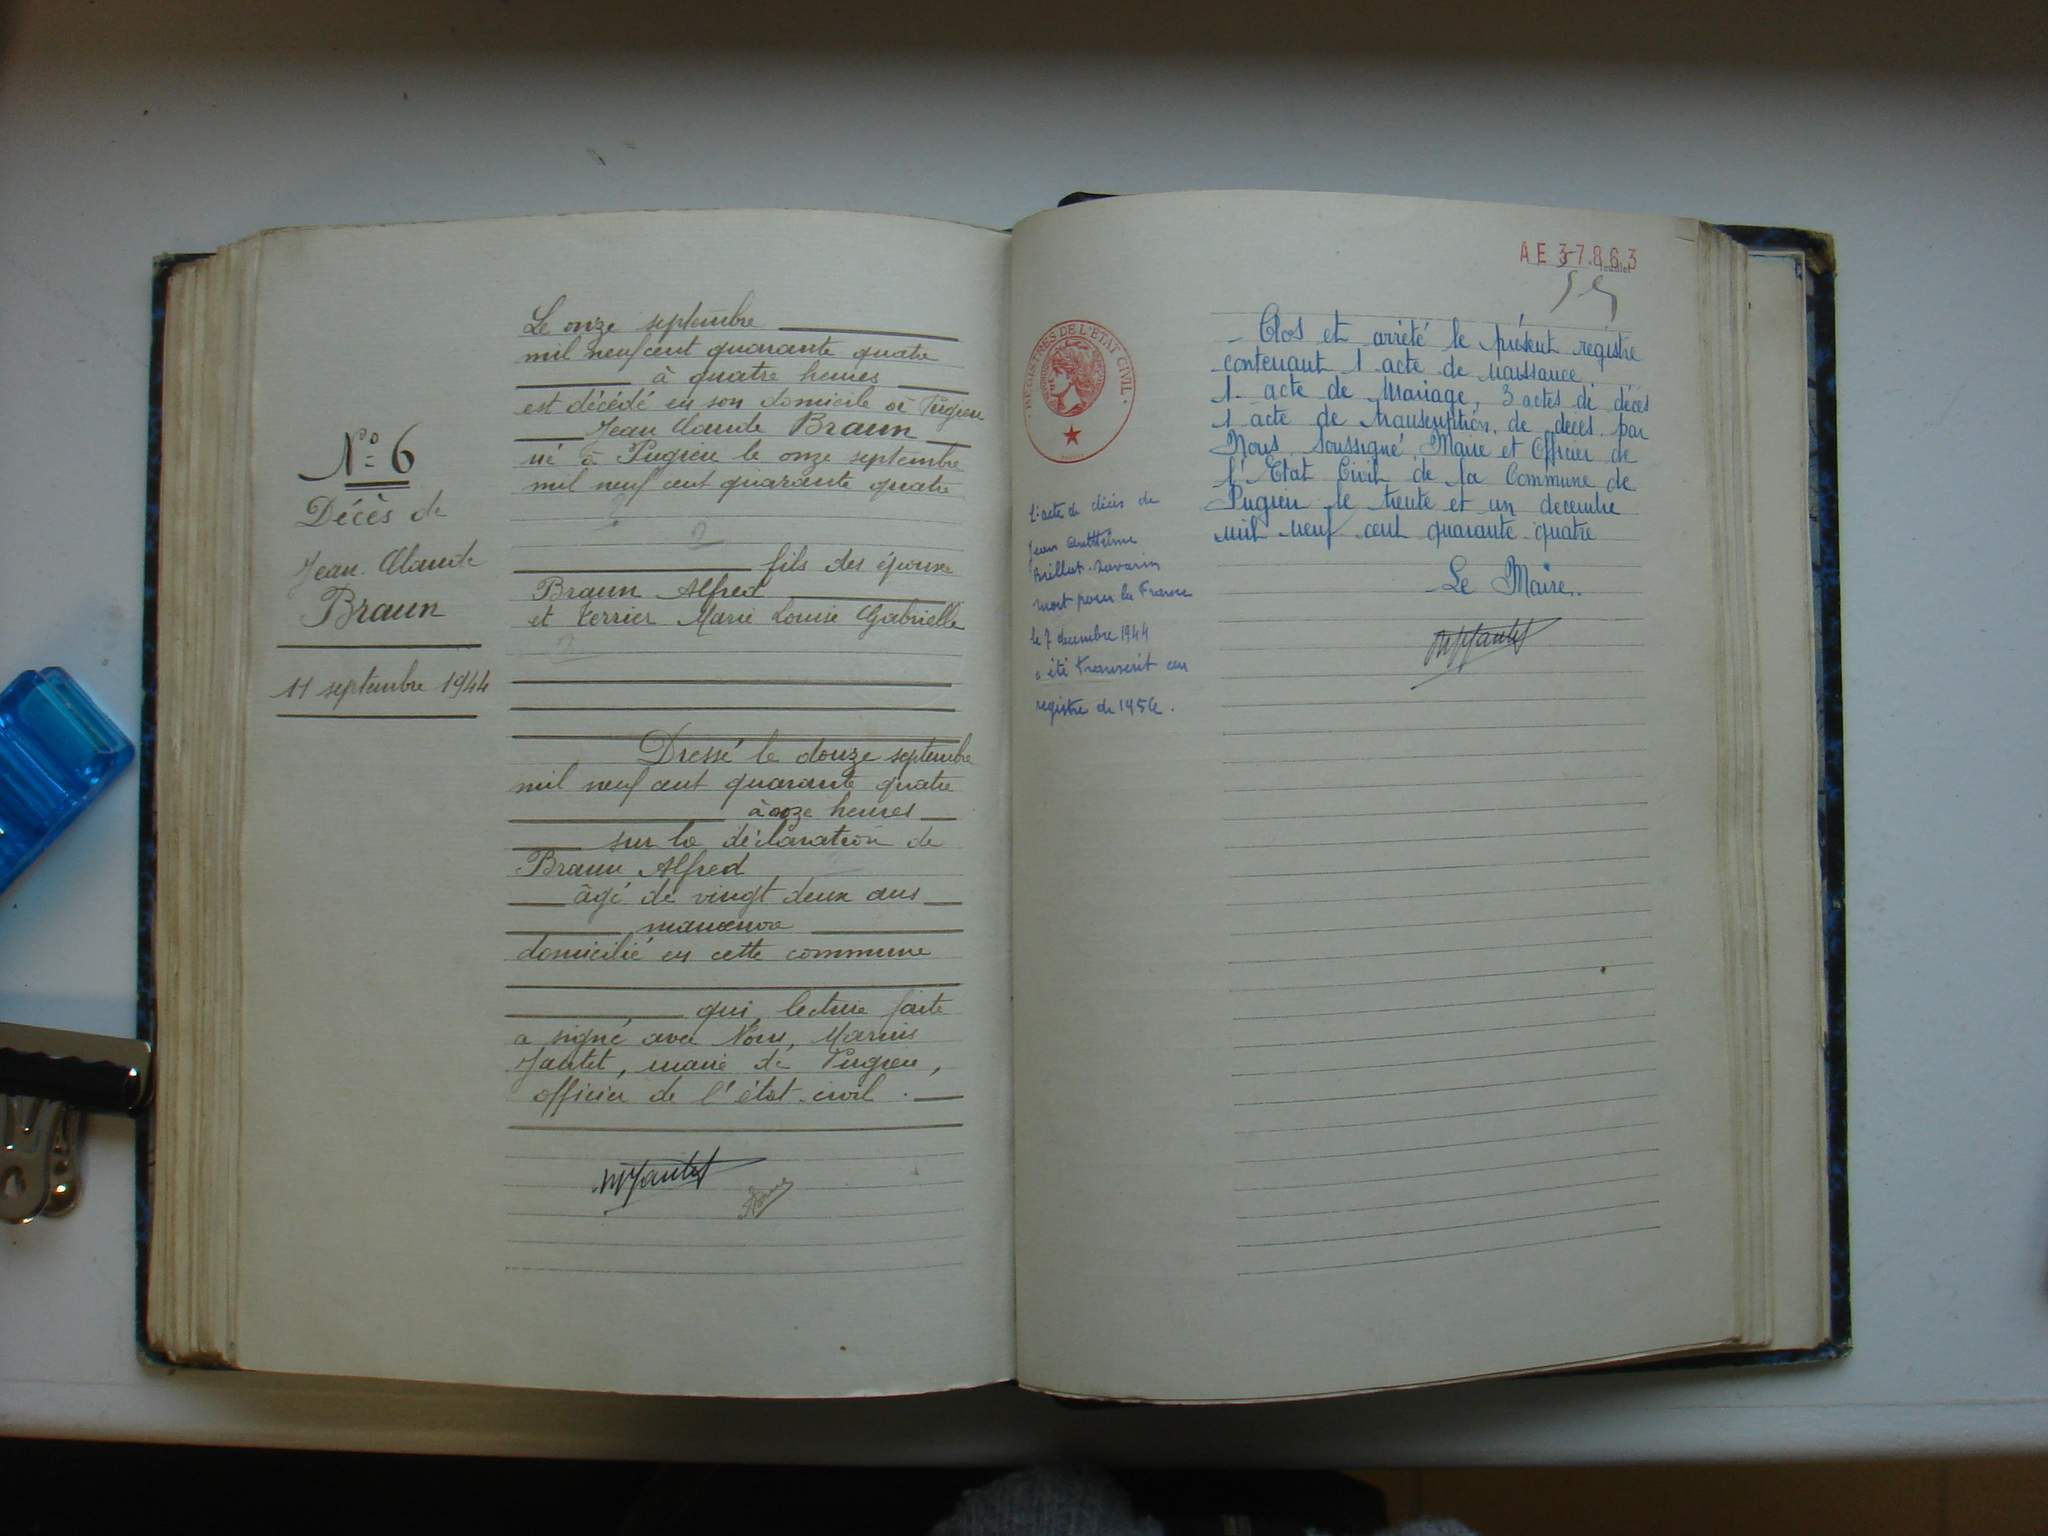 N° 6
Décès de
Jean Claude
Braun
11 septembre 1944
Le onze septembre
mil neuf cent quarante quatre
à quatre heures
est décédé en son domicile à Pugieu
Jean Claude Braun
né à Pugieu le onze septembre
mil neuf cent quarante quatre
fils des époux
Braun Alfred
et Terrier Marie Louise Gabrielle
Dressé le douze septembre
mil neuf cent quarante quatre
à onze heures
sur la déclaration de
Braun Alfred
âgé de vingt deux ans
manœuvre
domicilié en cette commune
qui, lecture faite
a signé avec Nous, Marius
Jantet, maire de Pugieu,
officier de l'état-civil.
MJantet
AE 37.863
feuillet
REGISTRES DE L'ETAT CIVIL
L'acte de décès de
Jean Anthelme
Brillat-Savarin
mort pour la France
le 7 décembre 1944
a été transcrit au
registre de 1956.
Clos et arrêté le présent registre
contenant 1 acte de naissance
1 acte de Mariage, 3 actes de décès
1 acte de transcription de décès par
Nous soussigné Maire et Officier de
l'Etat Civil de la Commune de
Pugieu le trente et un decembre
mil neuf cent quarante quatre
Le Maire.
MJantet